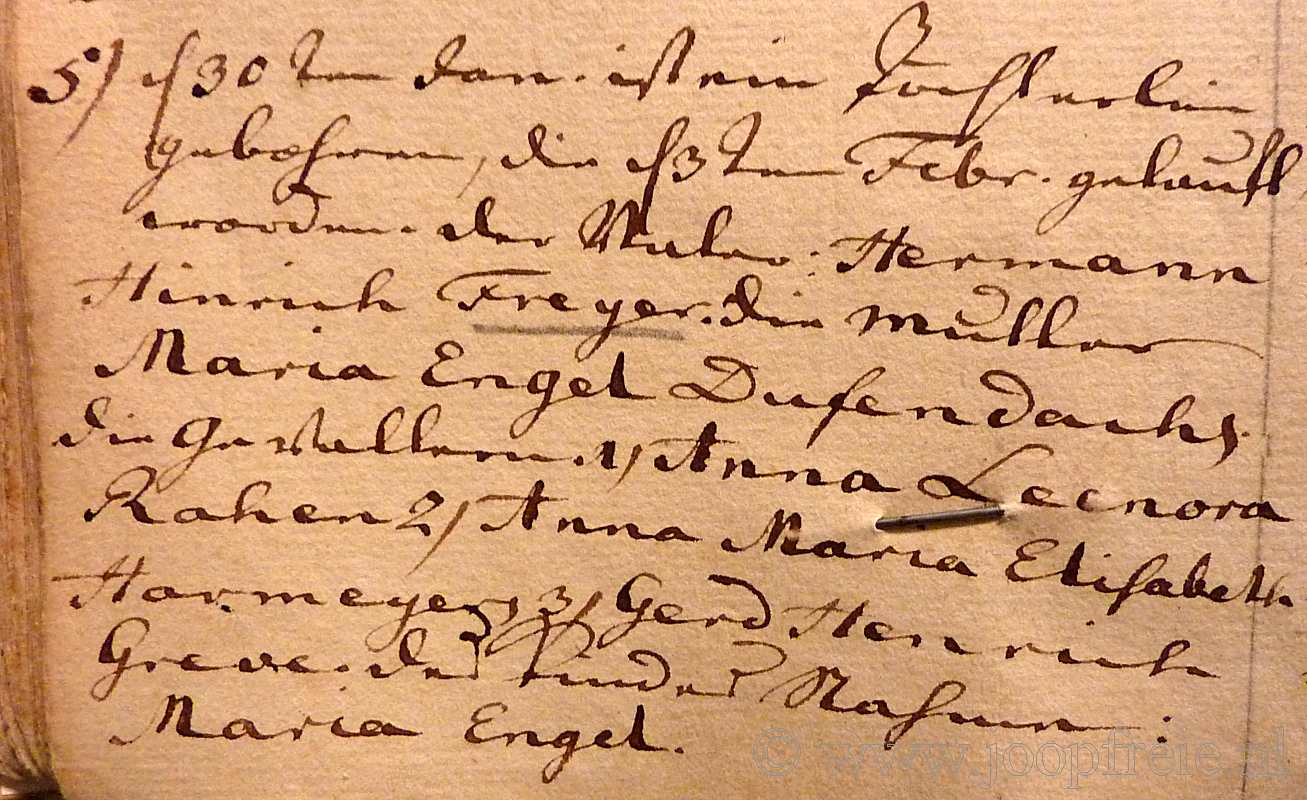 5) d 30ten Jan. ist ein Töchterlein
gebohren, die d 3ten Febr. getauft
worden. der Vater: Hermann
Hinrich Freyer. die Mutter
Maria Engel Dufendachs
die Gevattern. 1) Anna Leenora
Rahen 2) Anna Maria Elisabeth
Harmeyers, 3) Gerd Henrich
Greve. des Kindes Nahmen:
Maria Engel.
© www.joopfreie.nl